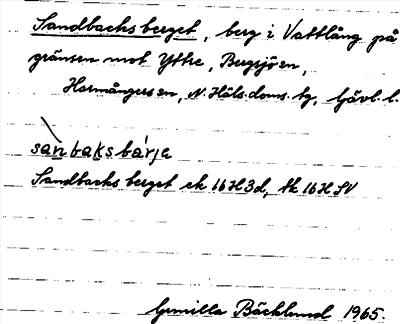 Sandbacksberget, berg i Vattlång på
gränsen mot Yttre, Bergsjö sn,
Harmångers sn, N. Häls. doms. tg, Gävl. l.
sanbaksbàrje
Sandbacksberget ek 16H3d, tk 16H SV
Gunilla Bäcklund 1965.